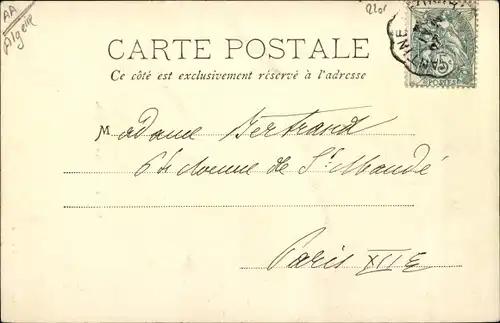 AA
Algérie
CARTE POSTALE
Ce côté est exclusivement réservé à l'adresse
Madame Bertrand
64 Avenue de St Mandé
Paris XIIE